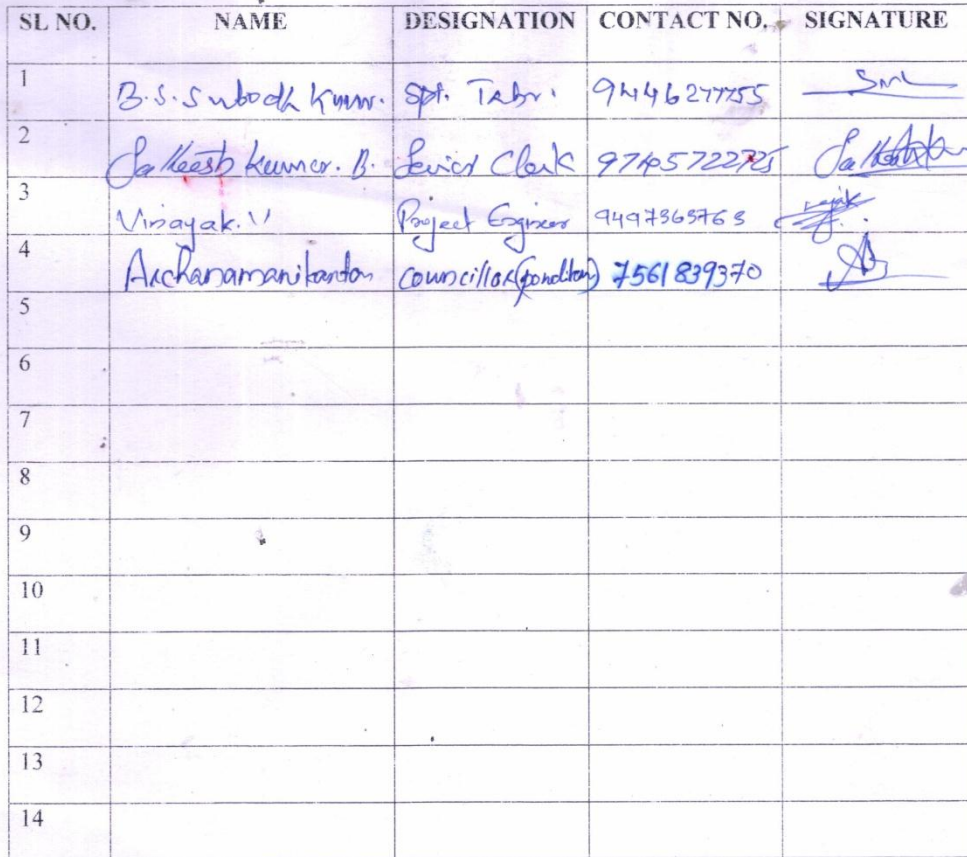 SL NO. NAME DESIGNATION CONTACT NO. SIGNATURE
1 B.S. Subodh Kumar. Spl. 9446277755
2 Satheesh Kumar. B. Senior Clerk
3 Vinayak. V Project Engineer 9497365763
4 Archanamanikantan Councillor 7561839370
5
6
7
8
9
10
11
12
13
14